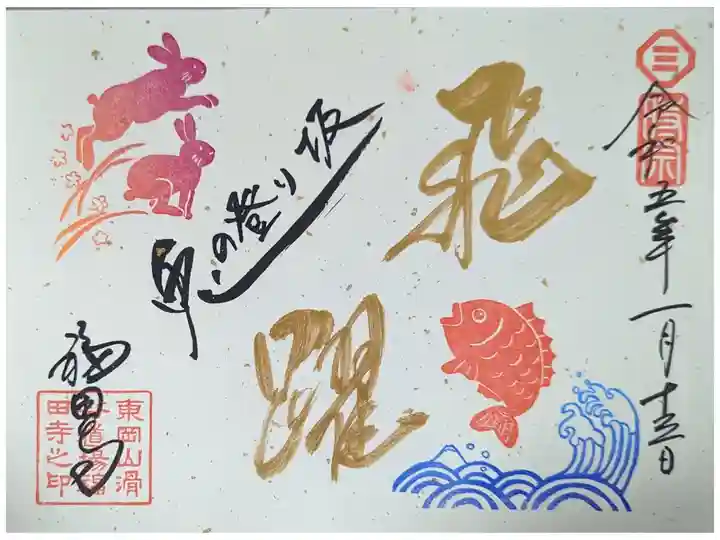 三
令和五年一月十三日
飛躍
兎の登り坂
福田寺
東岡山滑
谷道場福
田寺之印